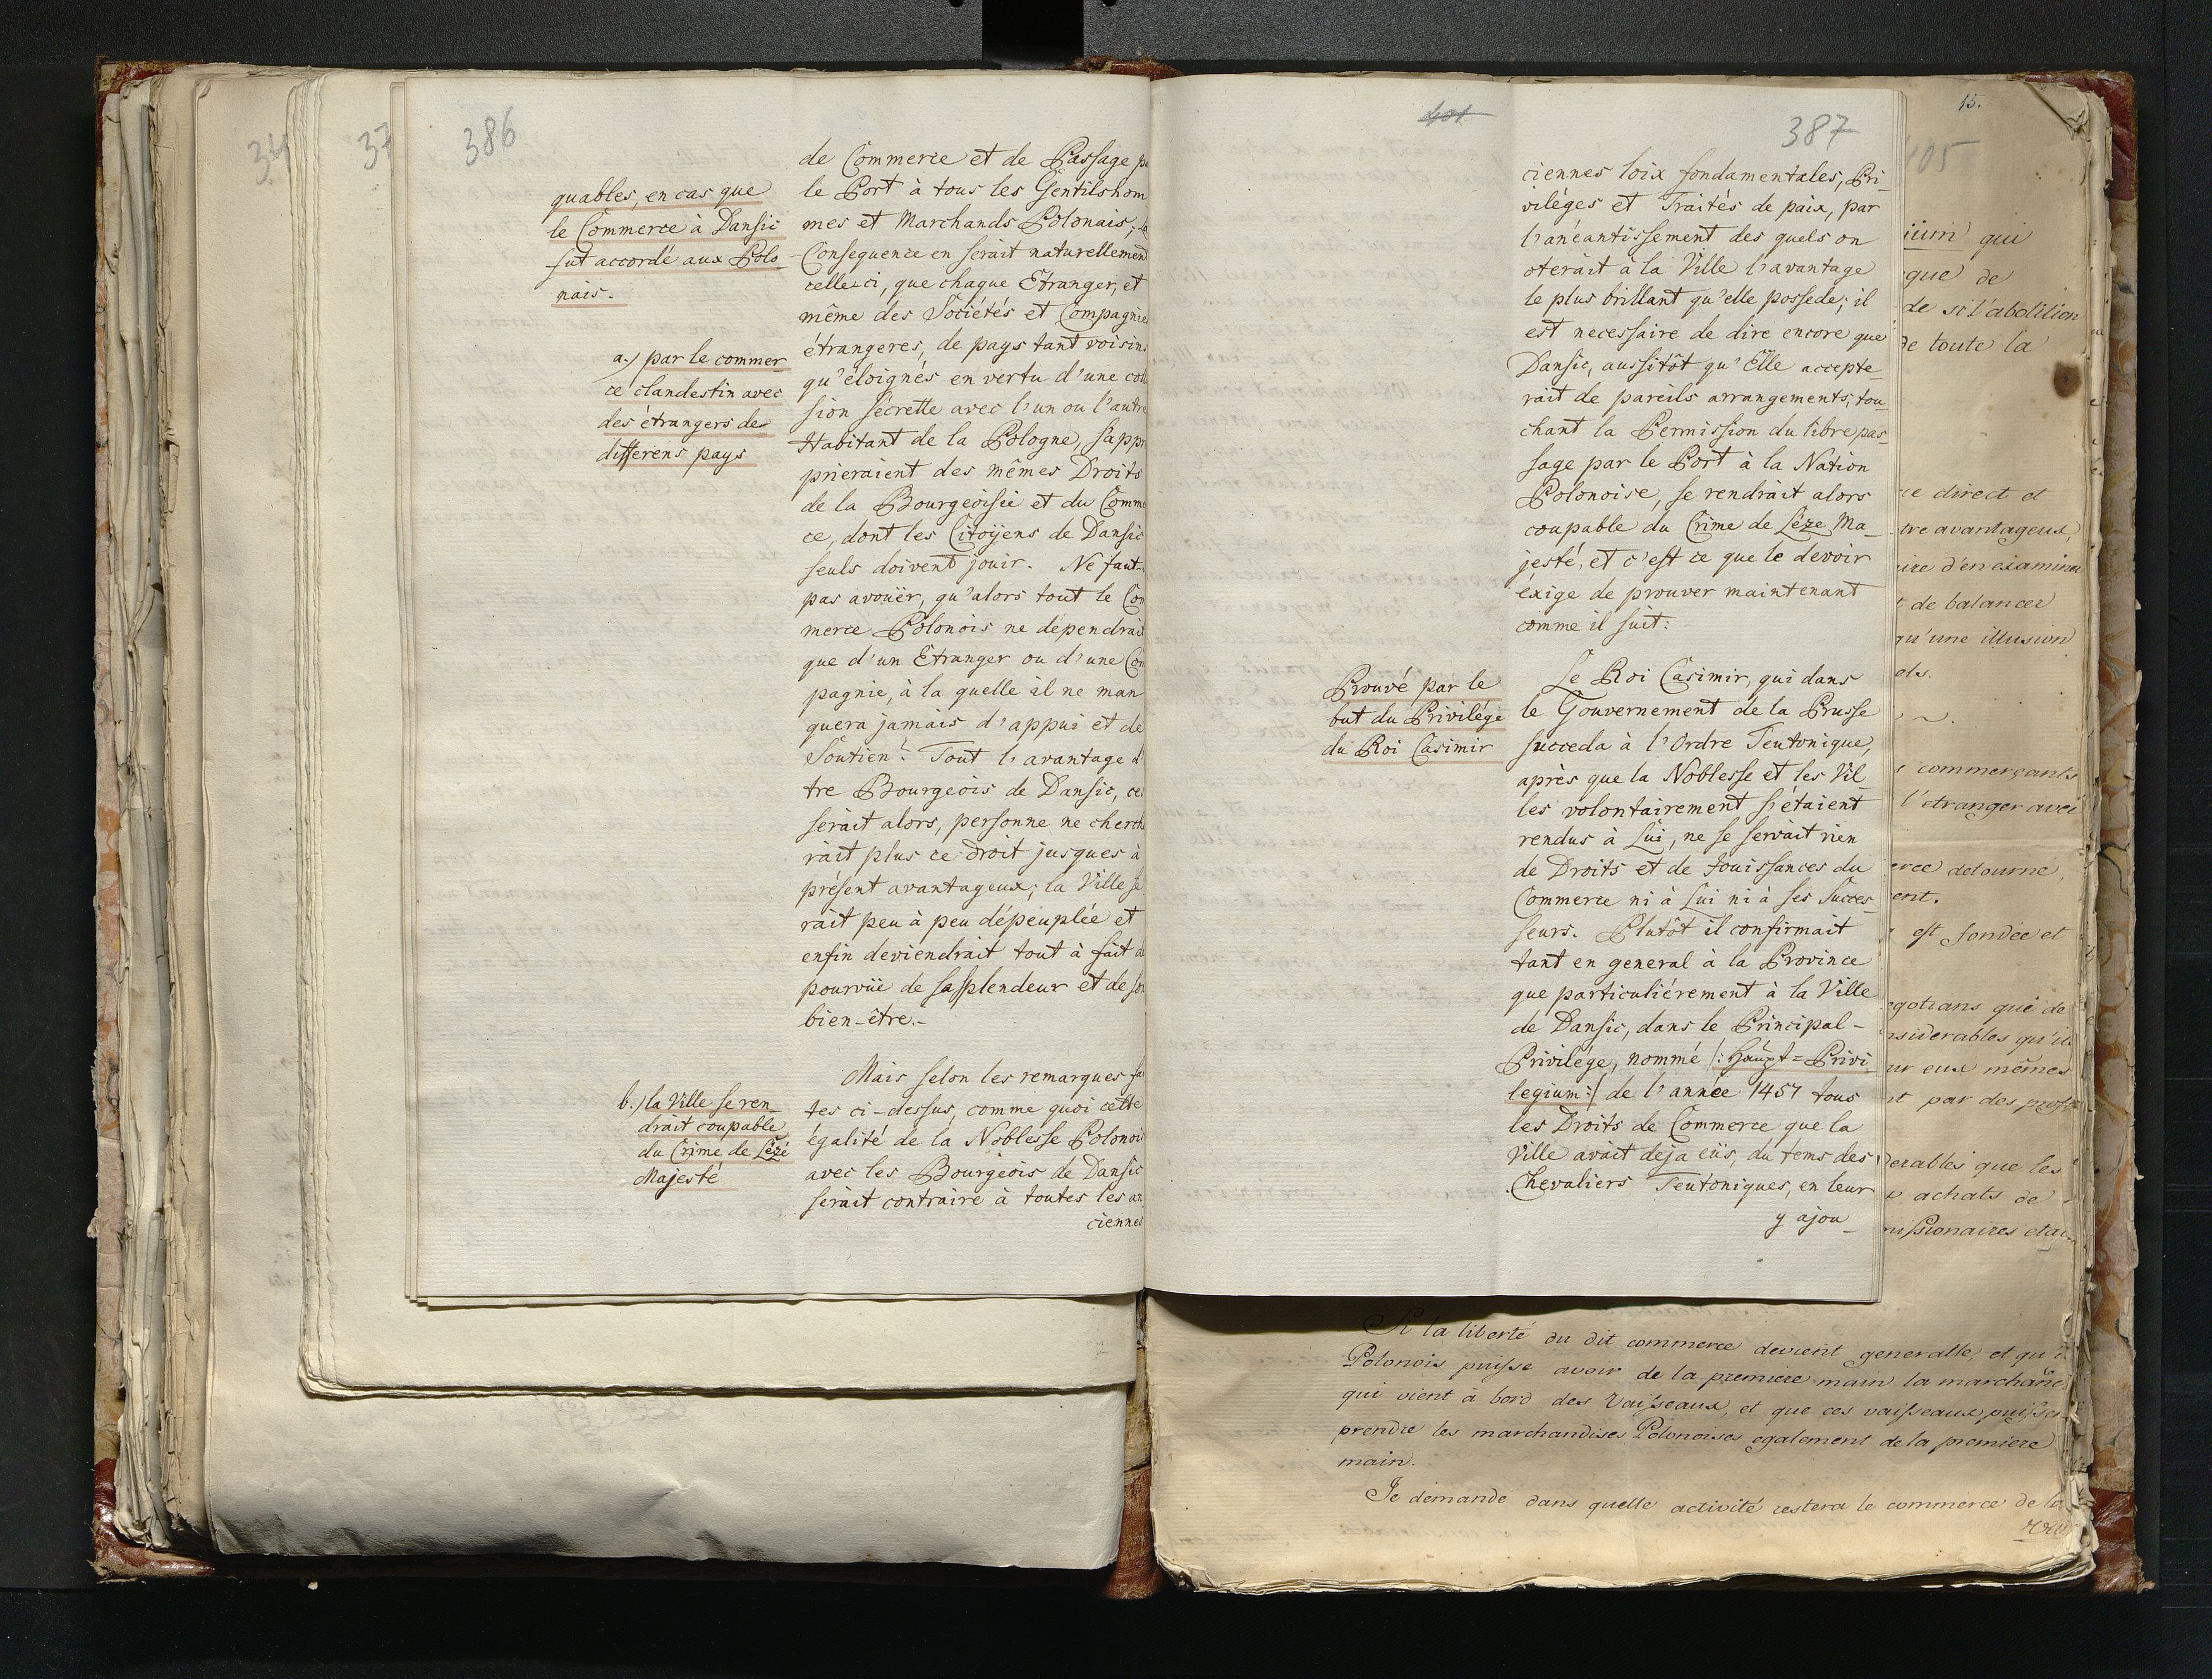 386
quables, en cas que
le Commerce à Dansic
fut accordé aux Polo
nais.
a.) par le commer
ce clandestin avec
des étrangers de
differens pays
b.) la Ville se ren
drait coupable
du Crime de Lézé
Majesté
de Commerce et de Passage
le Port à tous les Gentilshom
mes et Marchands Polonais;
Consequence en serait naturellement
celle-ci, que chaque Etranger, et
même des Sociétés et Compagnie
étrangeres, de pays tant voisins
qu'éloignés en vertu d'une
sion sécrette avec l'un ou l'autre
Habitant de la Pologne, s'appr
prieraient des mêmes Droits
de la Bourgeoisie et du Comme
ce, dont les Citoÿens de Dansic
seuls doivent jouir. Ne faut-
pas avouër, qu'alors tout le Com
merce Polonois ne dépendrait
que d'un Etranger ou d'une Com
pagnie, à la quelle il ne man
quera jamais d'appui et de
Soutien? Tout l'avantage d'
tre Bourgeois de Dansic, ces
serait alors, personne ne cherche
rait plus ce droit jusques à
présent avantageux; la Ville se
rait peu à peu dépeuplée et
enfin deviendrait tout à fait
pourvüe de sa splendeur et de son
bien-être.-
Mais selon les remarques fai
tes ci-dessus, comme quoi cette
égalité de la Noblesse Polonoise
avec les Bourgeois de Dansic
serait contraire à toutes les an
ciennes
401
387
Prouvé par le
but du Privilége
du Roi Casimir
ciennes loix fondamentales, Pri-
viléges et Traités de paix, par
l'anéantissement des quels on
oterait à la Ville l'avantage
le plus brillant qu'elle possede; il
est necessaire de dire encore que
Dansic, aussitôt qu'Elle accepte-
rait de pareils arrangements, tou-
chant la Permission du libre pas-
sage par le Port à la Nation
Polonoise, se rendrait alors
coupable du Crime de Léze Ma-
jesté, et c'est ce que le devoir
éxige de prouver maintenant
comme il suit:
Le Roi Casimir, qui dans
le Gouvernement de la Prusse
succeda à l'Ordre Teutonique,
après que la Noblesse et les Vil-
les volontairement s'étaient
rendus à Lui, ne se servait rien
de Droits et de Jouissances du
Commerce ni à Lui ni à ses Succes-
seurs. Plutôt il confirmait
tant en general à la Province
que particuliérement à la Ville
de Dansic, dans le Principal-
Privilége, nommé /: Haupt=Privi
legium :/ de l'année 1457 tous
les Droits de Commerce que la
Ville avait deja eüs, du tems des
Chevaliers Teutoniques, en leur
y ajou-
15.
105
qui
de
de si l'abolition
de toute la
ce direct et
tre avantageux,
d'en examiner
de balancer
qu'une illusion
commerçants
l'etranger avec
detourne,
est fondée et
que de
considerables qu'ils
eux mêmes
par des
que les
achats de
Si la liberté du dit commerce devient generalle, et qu'il
Polonois puisse avoir de la premiere main la marchand
qui vient à bord des Vaisseaux, et que ces vaisseaux puisse
prendre les marchandises Polonoises egalement de la premiere
main.
Je demande dans quelle activité restera le commerce de la